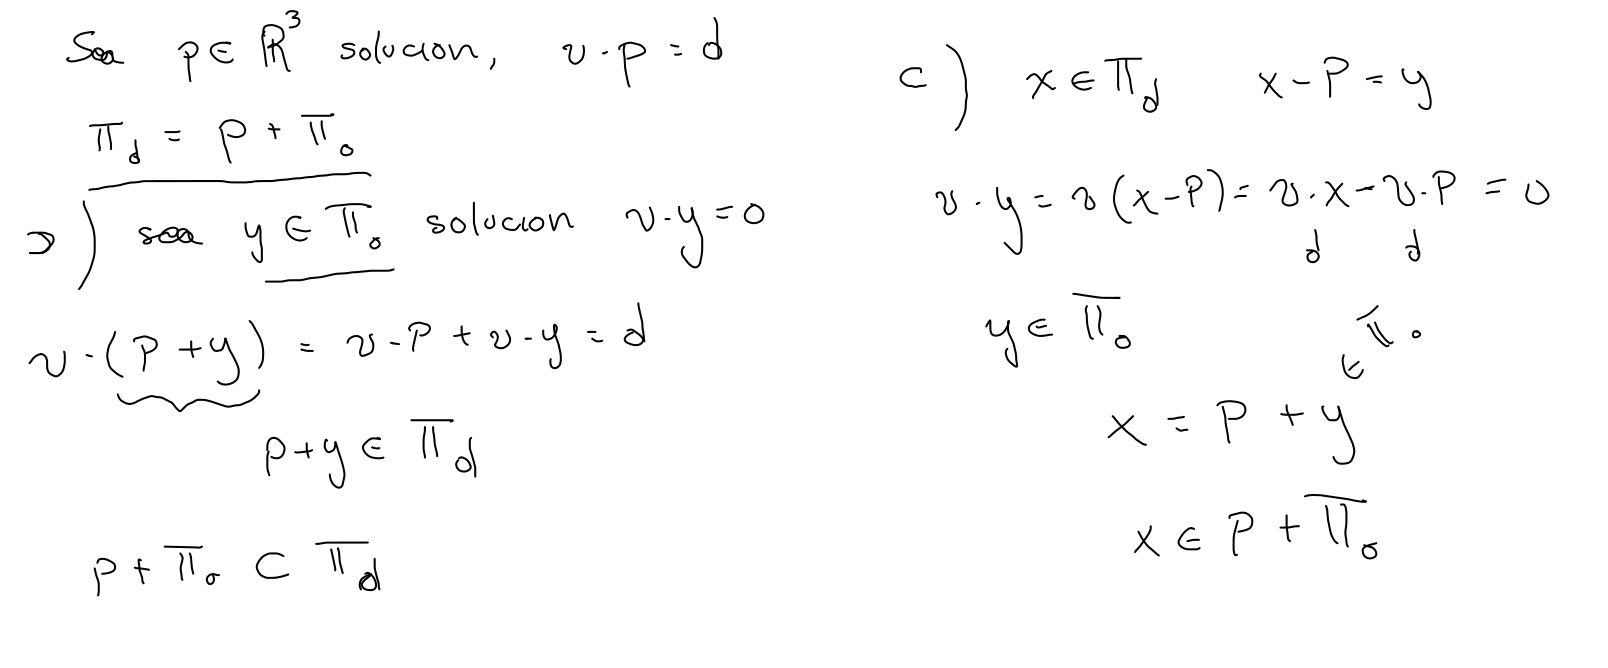 Sea p ∈ ℝ³ solucion, v · p = d
π_d = p + π_0
⊃) sea y ∈ π_0 solucion v·y = 0
v · (p + y) = v·p + v·y = d
p+y ∈ π_d
p + π_0 ⊂ π_d
⊂) x ∈ π_d x - p = y
v · y = v (x-p) = v·x - v·p = 0
d d
y ∈ π_0
∈ π_0
x = p + y
x ∈ p + π_0